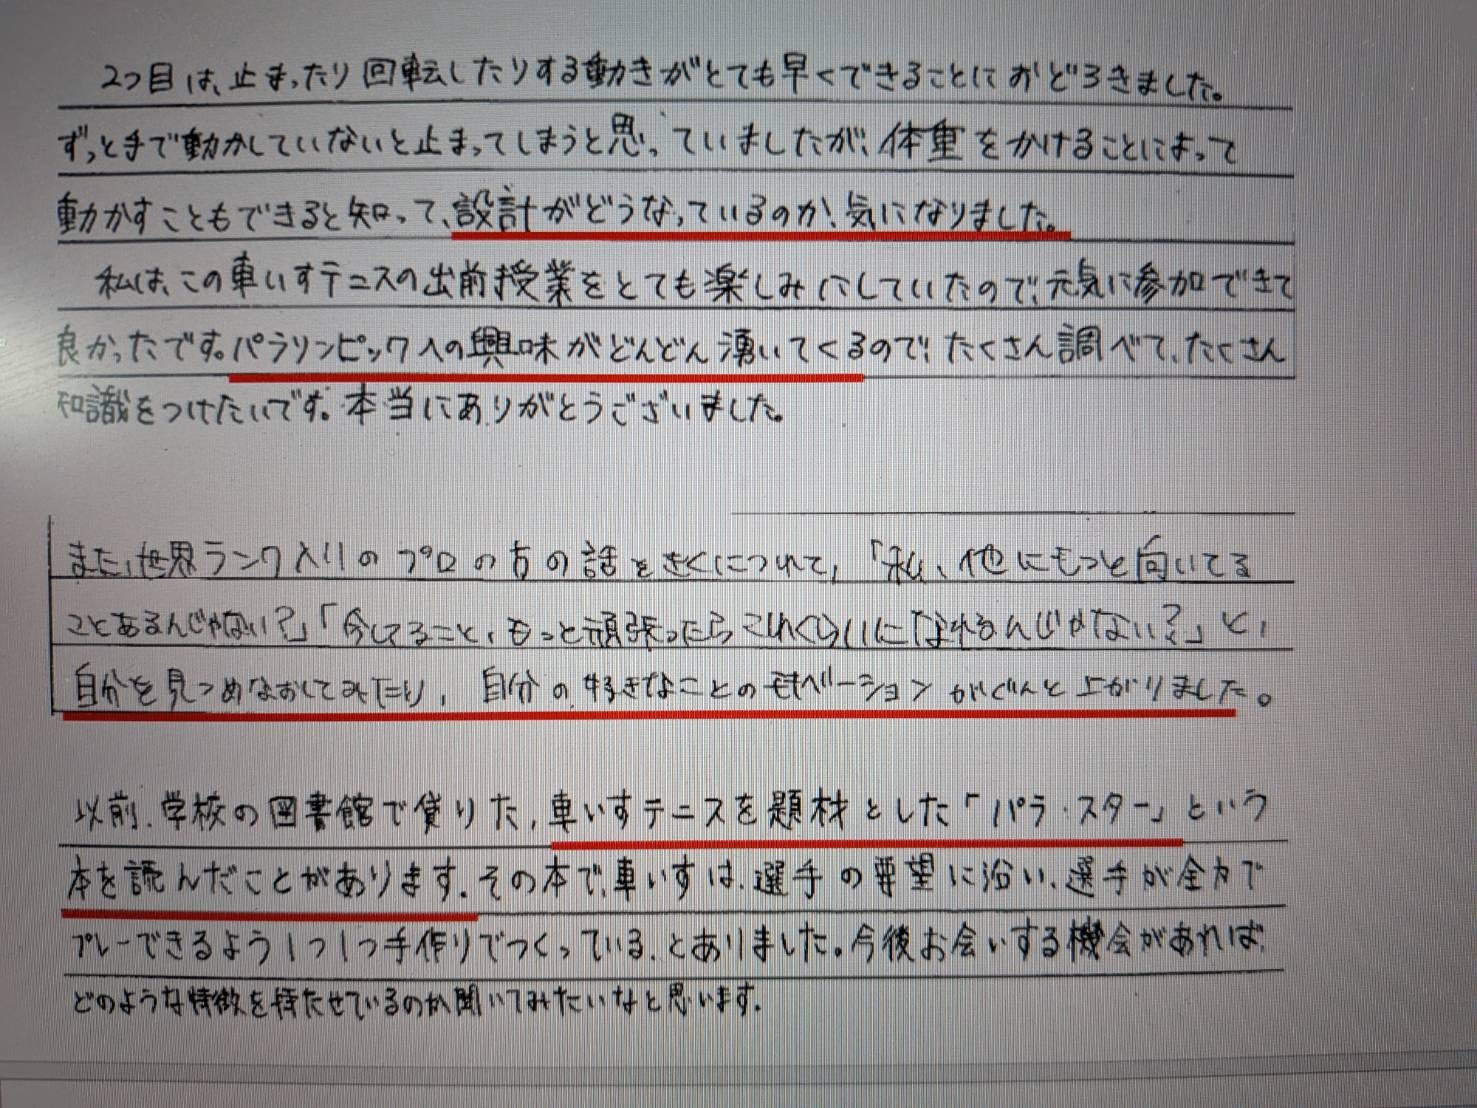 2つ目は、止まったり回転したりする動きがとても早くできることにおどろきました。
ずっと手で動かしていないと止まってしまうと思っていましたが、体重をかけることによって
動かすこともできると知って、設計がどうなっているのか、気になりました。
私は、この車いすテニスの出前授業をとても楽しみにしていたので、元気に参加できて
良かったです。パラリンピックへの興味がどんどん湧いてくるので、たくさん調べて、たくさん
知識をつけたいです。本当にありがとうございました。
また、世界ランク入りのプロの方の話をきくにつれて、「私、他にもっと向いてる
ことあるんじゃない?」「今してること、もっと頑張ったらこれくらいになれるんじゃない?」と、
自分を見つめなおしてみたり、自分の好きなことのモチベーションがぐんと上がりました。
以前、学校の図書館で借りた、車いすテニスを題材とした「パラ・スター」という
本を読んだことがあります。その本で、車いすは、選手の要望に沿い、選手が全力で
プレーできるよう1つ1つ手作りでつくっている、とありました。今後お会いする機会があれば、
どのような特徴を持たせているのか聞いてみたいなと思います。